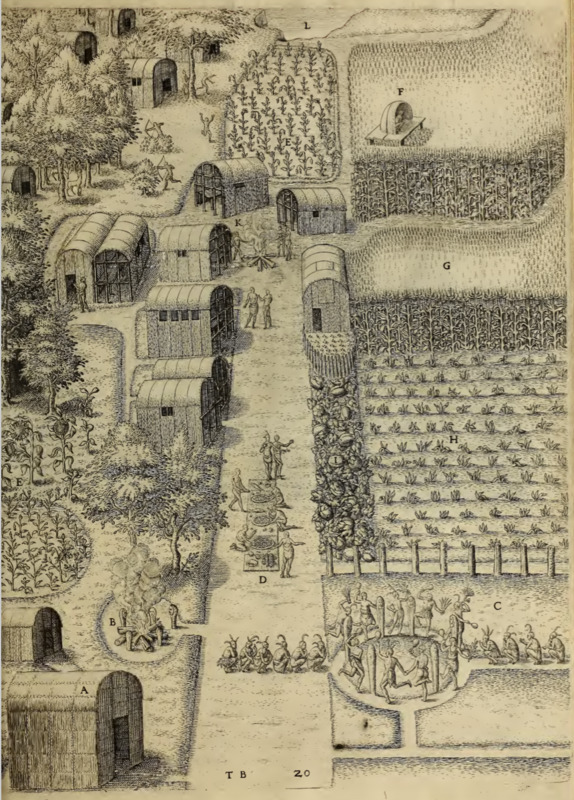 L
F
E
K
G
H
I
E
D
C
B
A
T B 20